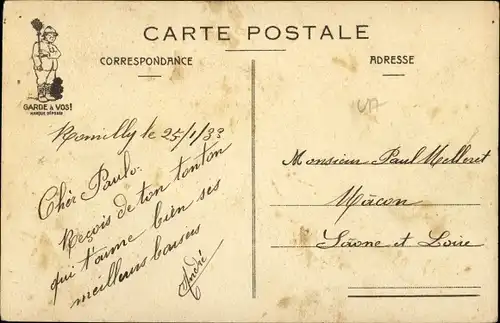 CARTE POSTALE
CORRESPONDANCE
ADRESSE
GARDE A VOS!
MARQUE DÉPOSÉE
Romilly le 25/1/33
Chèr Paulo.
Reçois de ton tonton
qui t'aime bien ses
meilleurs baisers
André
Monsieur Paul Melleret
Mâcon
Saône et Loire